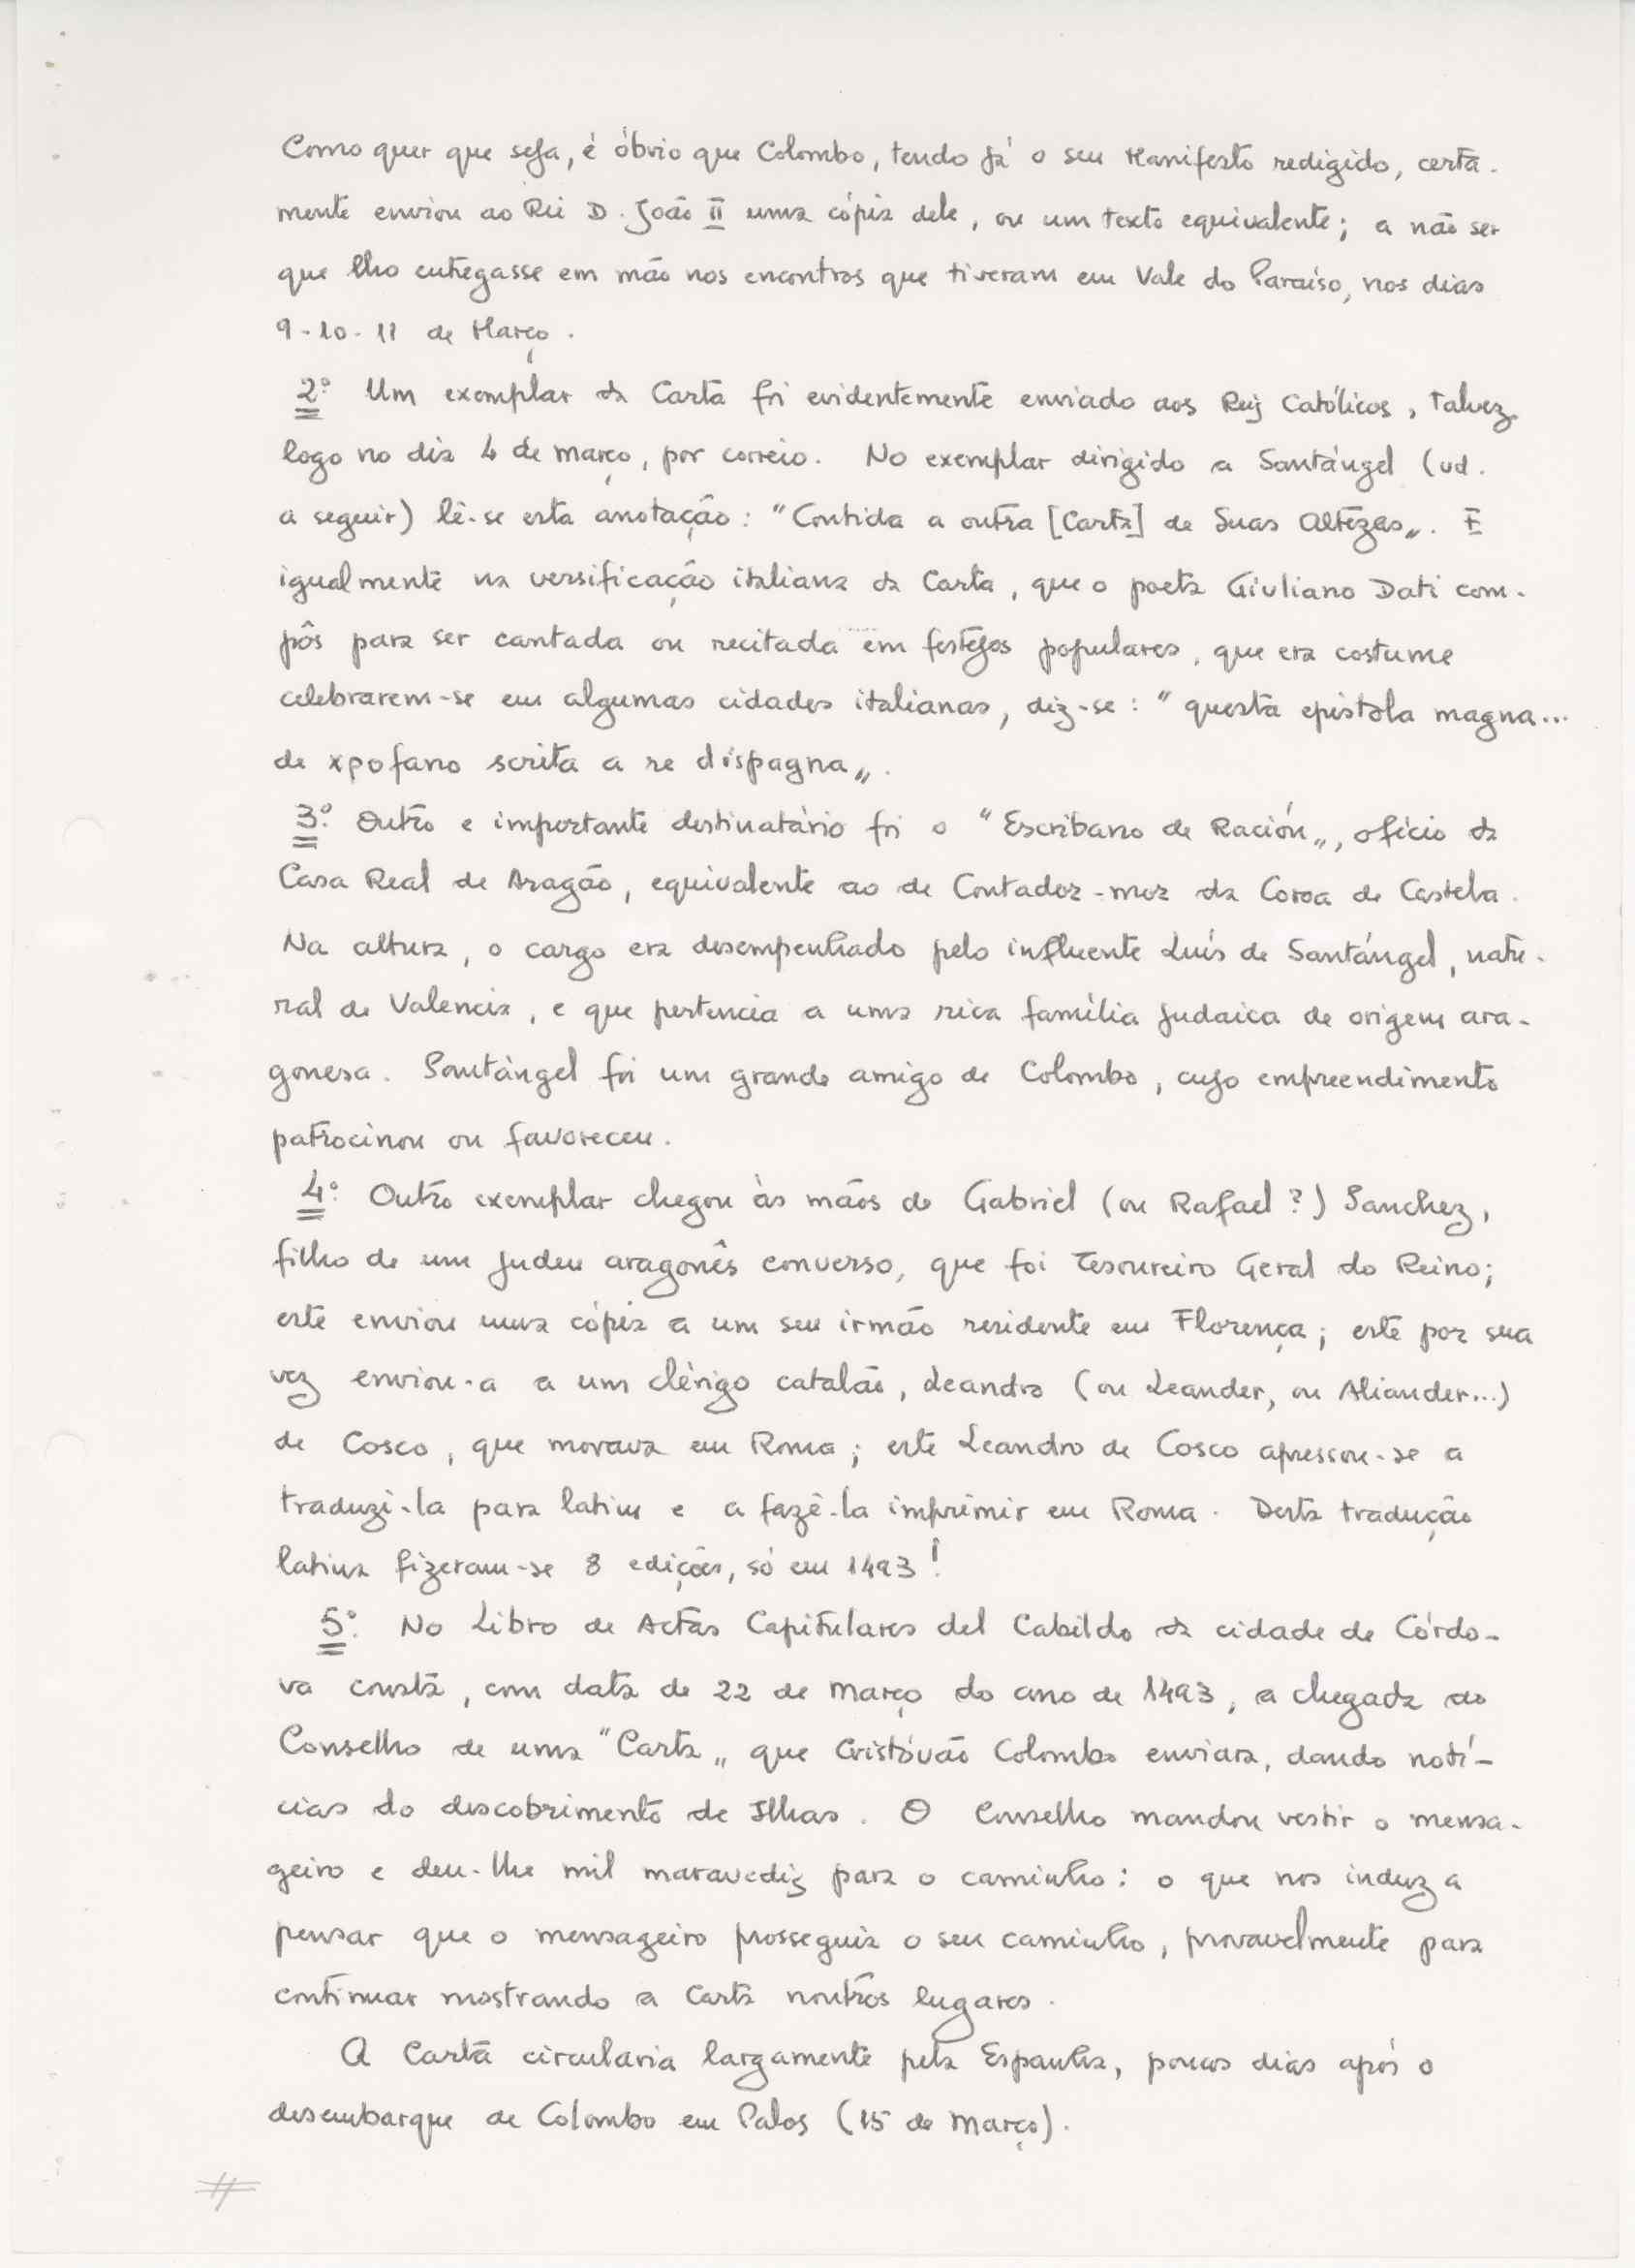 Como quer que seja, é óbvio que Colombo, tendo já o seu Manifesto redigido, certa-
mente enviou ao Rei D. João II uma cópia dele, ou um texto equivalente; a não ser
que lho entregasse em mão nos encontros que tiveram em Vale do Paraíso, nos dias
9-10-11 de Março.
2º. Um exemplar da Carta foi evidentemente enviado aos Reis Católicos, talvez
logo no dia 4 de março, por correio. No exemplar dirigido a Santángel (vd.
a seguir) lê-se esta anotação: "Contida a outra [Carta] de Suas Altezas„. E
igualmente na versificação italiana da Carta, que o poeta Giuliano Dati com-
pôs para ser cantada ou recitada em festejos populares, que era costume
celebrarem-se em algumas cidades italianas, diz-se: "questa epistola magna...
de xpofano scrita a re dispagna„.
3º. Outro e importante destinatário foi o "Escribano de Ración„, ofício da
Casa Real de Aragão, equivalente ao de Contador-mor da Coroa de Castela.
Na altura, o cargo era desempenhado pelo influente Luís de Santángel, natu-
ral de Valencia, e que pertencia a uma rica família judaica de origem ara-
gonesa. Santàngel foi um grande amigo de Colombo, cujo empreendimento
patrocinou ou favoreceu.
4º. Outro exemplar chegou às mãos de Gabriel (ou Rafael?) Sanchez,
filho de um judeu aragonês converso, que foi Tesoureiro Geral do Reino;
este enviou uma cópia a um seu irmão residente em Florença; este por sua
vez enviou-a a um clérigo catalão, Leandro (ou Leander, ou Aliander...)
de Cosco, que morava em Roma; este Leandro de Cosco apressou-se a
traduzi-la para latim e a fazê-la imprimir em Roma. Desta tradução
latina fizeram-se 8 edições, só em 1493!
5º. No Libro de Actas Capitulares del Cabildo da cidade de Córdo-
va consta, com data de 22 de março do ano de 1493, a chegada ao
Conselho de uma "Carta„ que Cristóvão Colombo enviara, dando notí-
cias do descobrimento de Ilhas. O Conselho mandou vestir o mensa-
geiro e deu-lhe mil maravediz para o caminho: o que nos induz a
pensar que o mensageiro prosseguia o seu caminho, provavelmente para
continuar mostrando a Carta noutros lugares.
A Carta circularia largamente pela Espanha, poucos dias após o
desembarque de Colombo em Palos (15 de março).